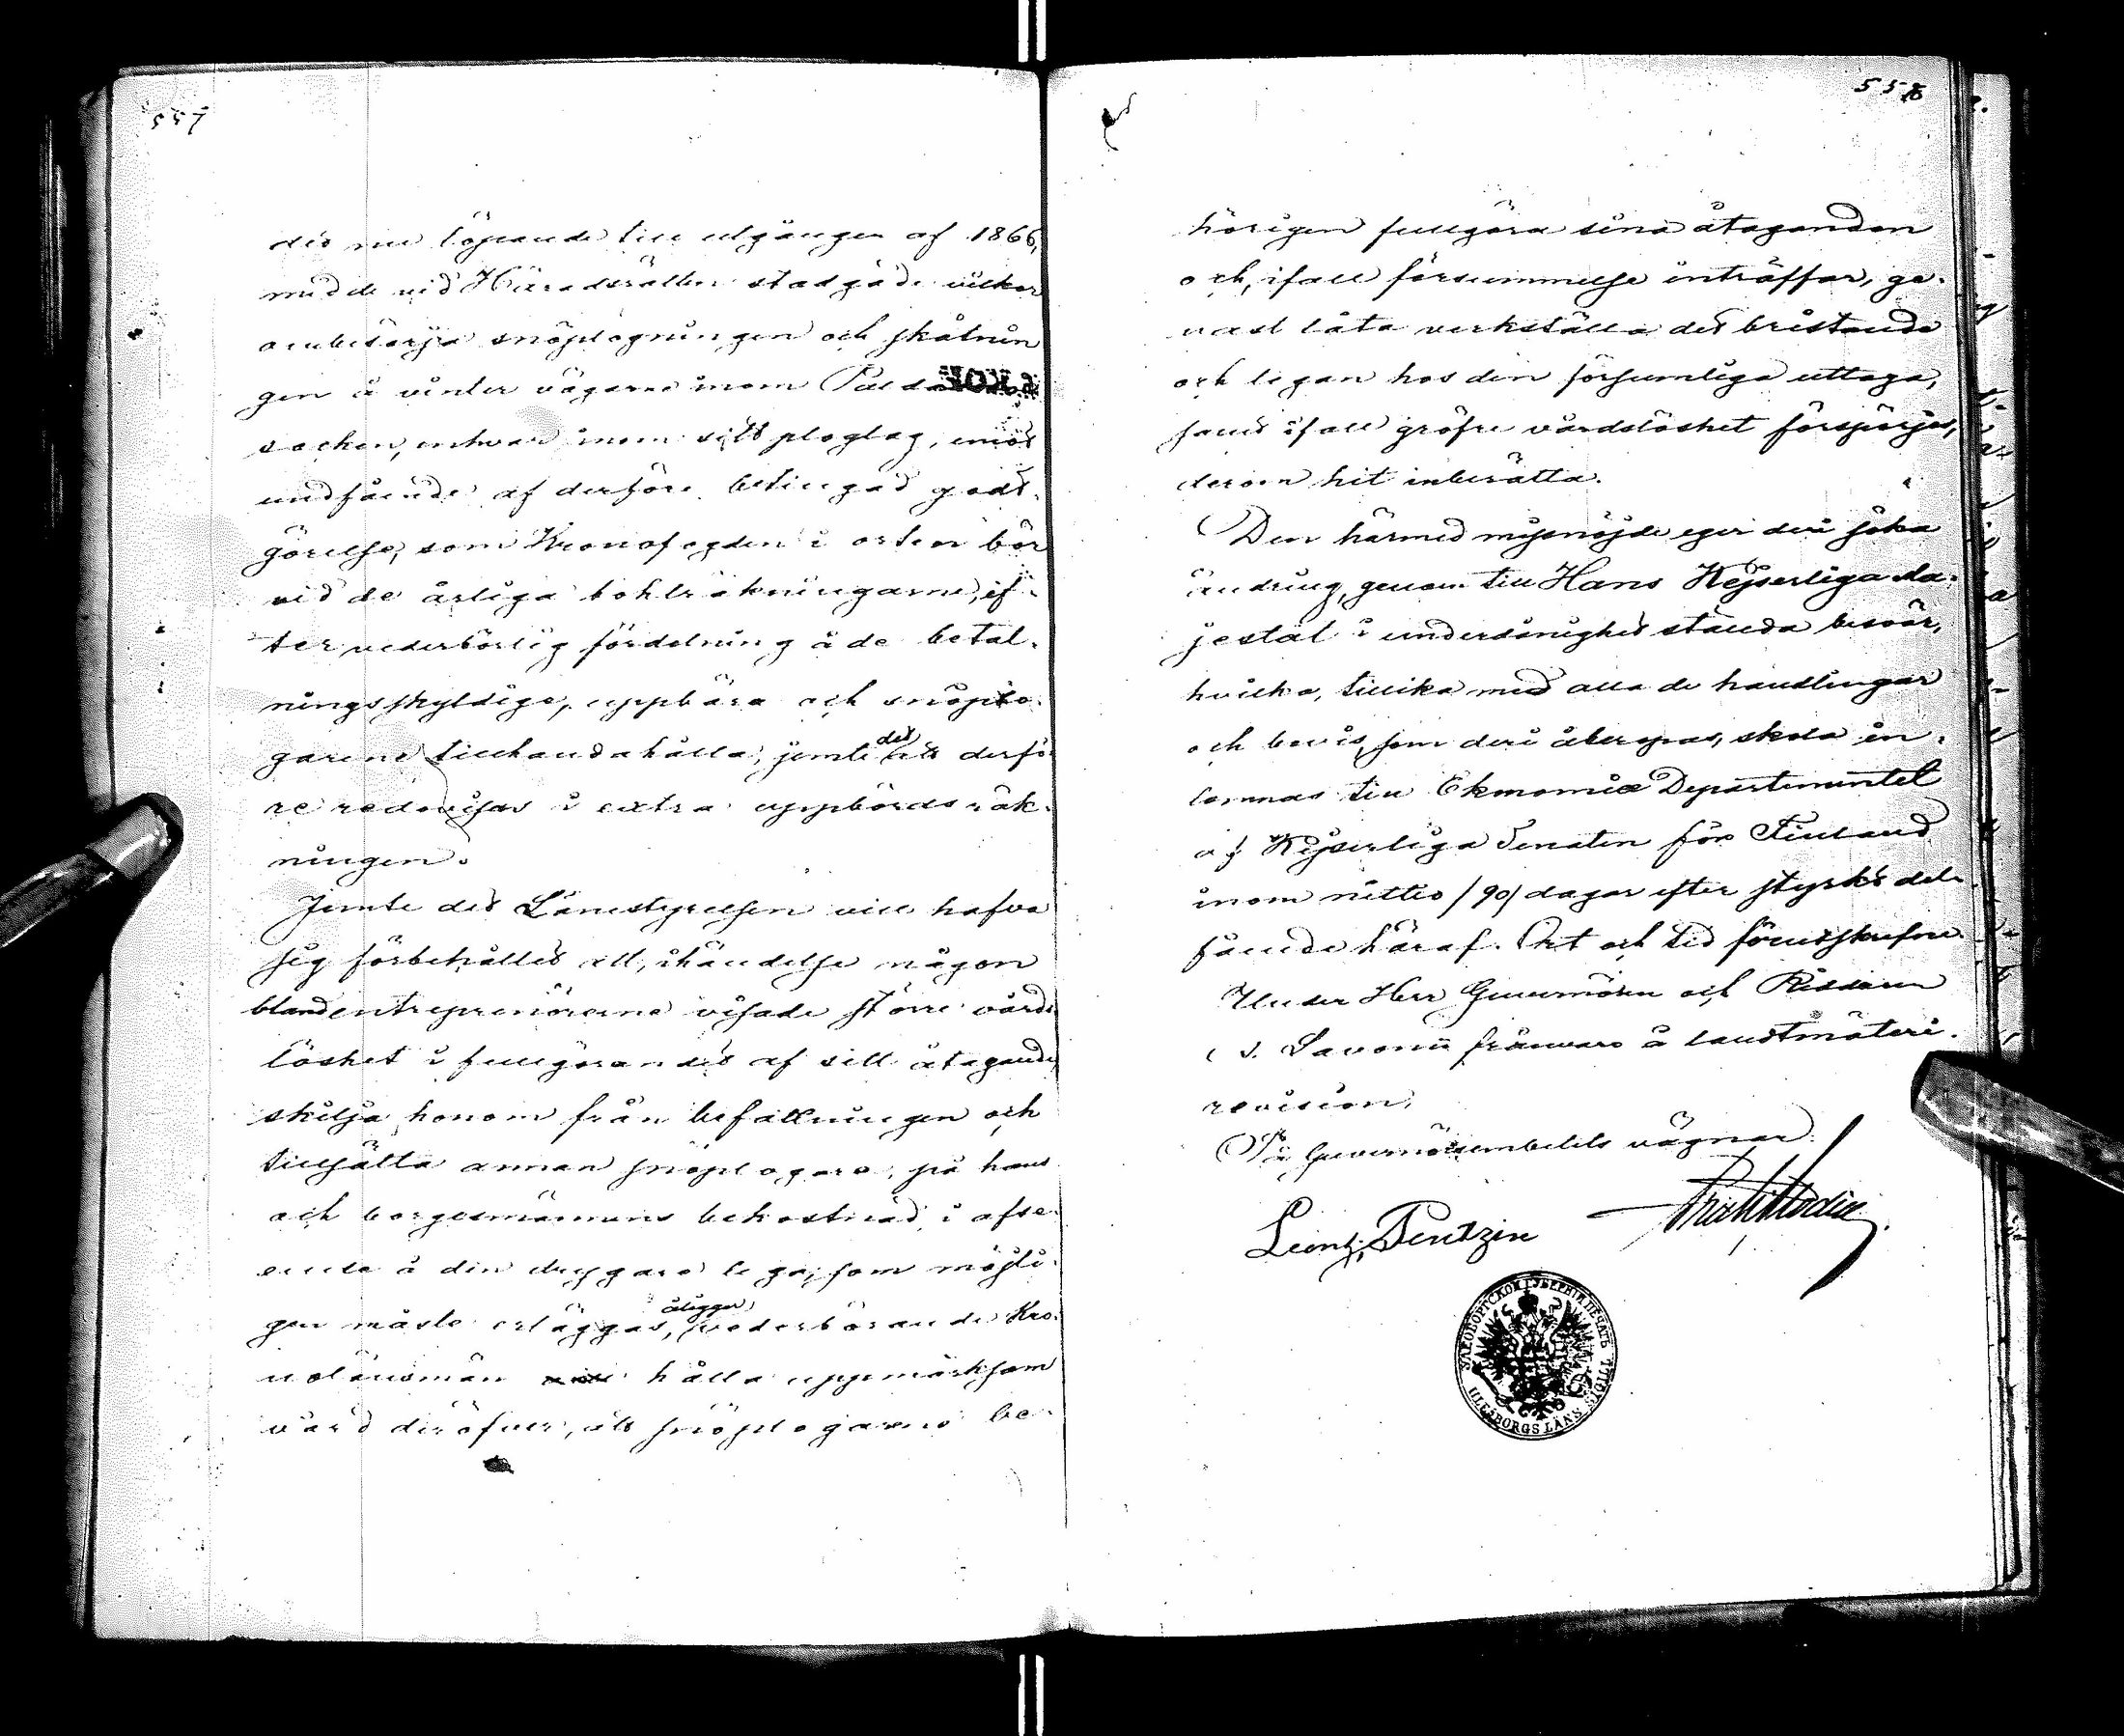 557
det nu löpande till utgången af 1866,
med de vid Häradsrätten stadgade vilkor
ombesörja snöplogningen och skåtnin
gen å vinter vägarne inom Paldamo
socken, enhvar inom sitt ploglag, emot
undfående af derföre betingad godt-
görelse, som Kronofogden i orten bör
vid de årliga bohlräkningarne, ef-
ter vederbörlig fördelning å de betal-
ningsskyldige, uppbära och snöplo-
garene tillhandahålla, jemte det att derfö-
re redovisas i extra uppbörds räk-
ningen.
Jemte det Länestyrelsen vill hafva
sig förbehållet att, i händelse någon
bland entreprenörerne visade större vårds
löshet i fullgörandet af sitt åtagande,
skilja honom från befattningen och
tillsätta annan snöplogare, på hans
och borgesmännens bekostnad, i afse-
ende å den dryggare lega, som möjli-
gen måste erläggas, ålägges vederbörande Kro-
nolänsmän hålla uppmärksam
vård deröfver, att snöplogarene be-
558
hörigen fullgöra sina åtaganden
och, ifall försummelse inträffar, ge-
nast låta verkställa det bristande
och legan hos den försumliga uttaga,
samt ifall gröfre vårdslöshet försporjes,
derom hit inberätta.
Den härmed missnöjde eger deri söka
ändring, genom till Hans Kejserliga Ma-
jestät i underdånighet stälda besvär,
hvilka, tillika med alla de handlingar
och bevis, som deri åberopas, skola in-
lemnas till Ekonomie Departementet
af Kejserliga Senaten för Finland
inom nittio /90/ dagar efter styrkt del-
fående häraf. Ort och tid förutskrefne.
Under Herr Guvernören och Riddaren
S. Savonii frånvaro å landtmäteri-
revision;
På Guvernörsembetets vägnar:
Leont. Pentzin
УЛЕОБОРГСКОЙ ГУБЕРНІИ ПЕЧАТЬ
ULEÅBORGS LÄNS SIGILL